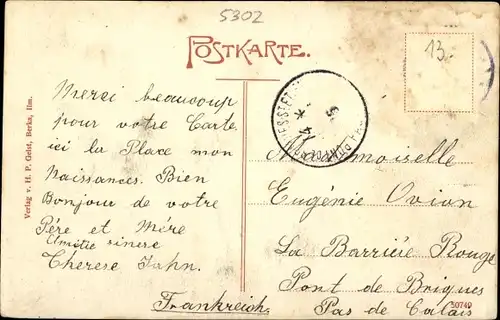 5302
POSTKARTE.
13.
Merci beaucoup
pour votre Carte
ici la Place mon
Naissances. Bien
Bonjour de votre
Pére et Mére
Amitie sinese
Therese Jahn.
Mademoiselle
Eugénie Ovion
La Barriére Rouge
Pont de Briques
Pas de Calais
Frankreich
Verlag v. H. P. Geist, Berka, Ilm.
30749